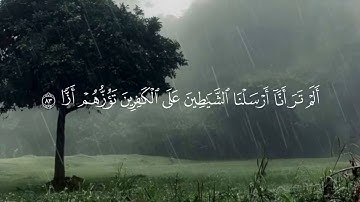 أَلَمْ تَرَ أَنَّآ أَرْسَلْنَا ٱلشَّيَٰطِينَ عَلَى ٱلْكَٰفِرِينَ تَؤُزُّهُمْ أَزًّا ٨٣